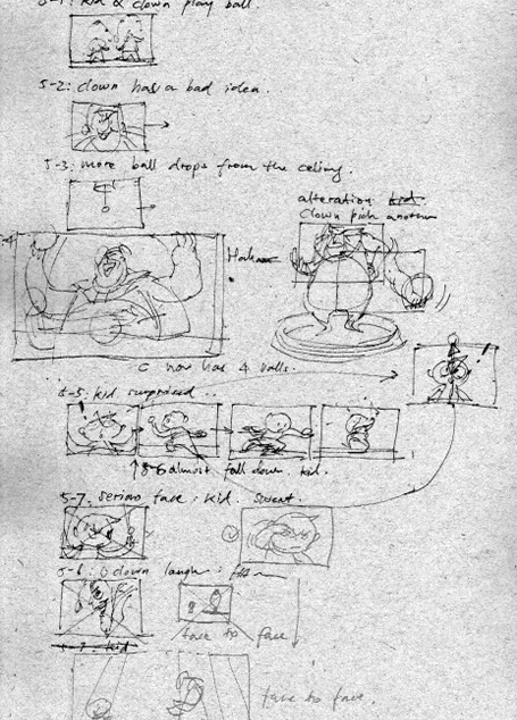 5-1: kid & clown play ball.
5-2: clown has a bad idea.
5-3: more ball drops from the celling.
alteration kid.
clown pick another
-4
C now has 4 balls.
5-5: kid surprised
5-6 almost fall down. kid.
5-7. serious face: kid. sweat.
5-6: clown laugh: HA
face to face
5-7: kid
face to face.